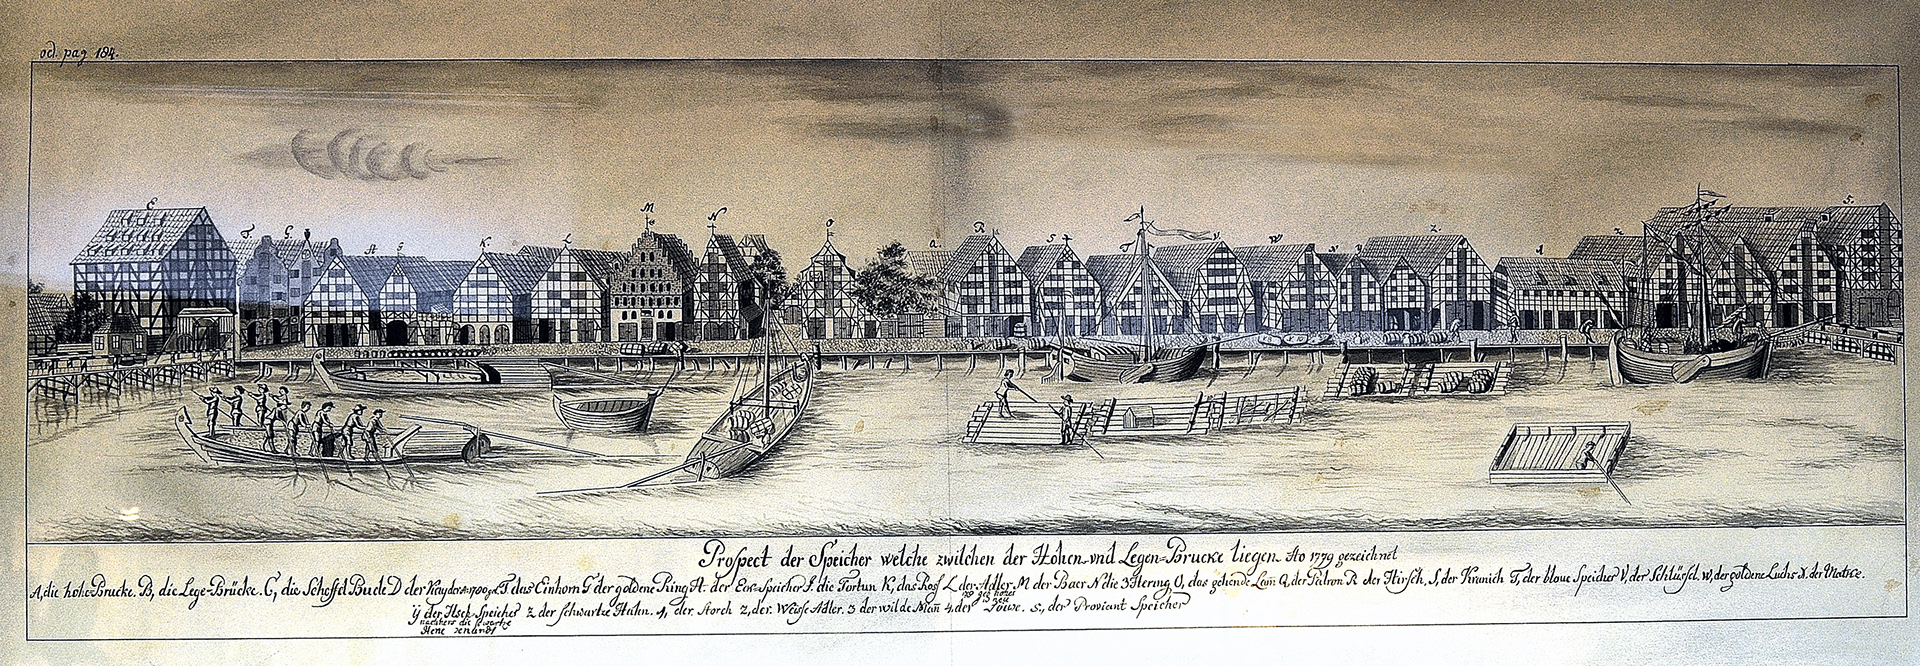 ad. pag 184.
E F. G. H J K. L M N O Q. R S T V. W X Y Z. 1 2 S.
Prospect der Speicher welche zwischen der Hohen und Legen-Brucke liegen Ao 1779 gezeichnet
A, die hohe-Brucke. B, die Lege-Brücke. C, die Scheffel Bude D der F das Einhorn G der goldene Ring H. der Speicher J. die Fortun K, das Roß L der Adler M der Baer N die 3 Hering O, das gehende Lam Q, der Patron R der Hirsch, S, der Kranich T, der blaue Speicher V, der Schlüßel. W, der goldene Luchs X. der
Ÿ der Speicher Z der schwartze Hahn. 1, der Storch 2, der Weisse Adler. 3 der wilde Man 4, der Löwe. 5, der Proviant Speicher